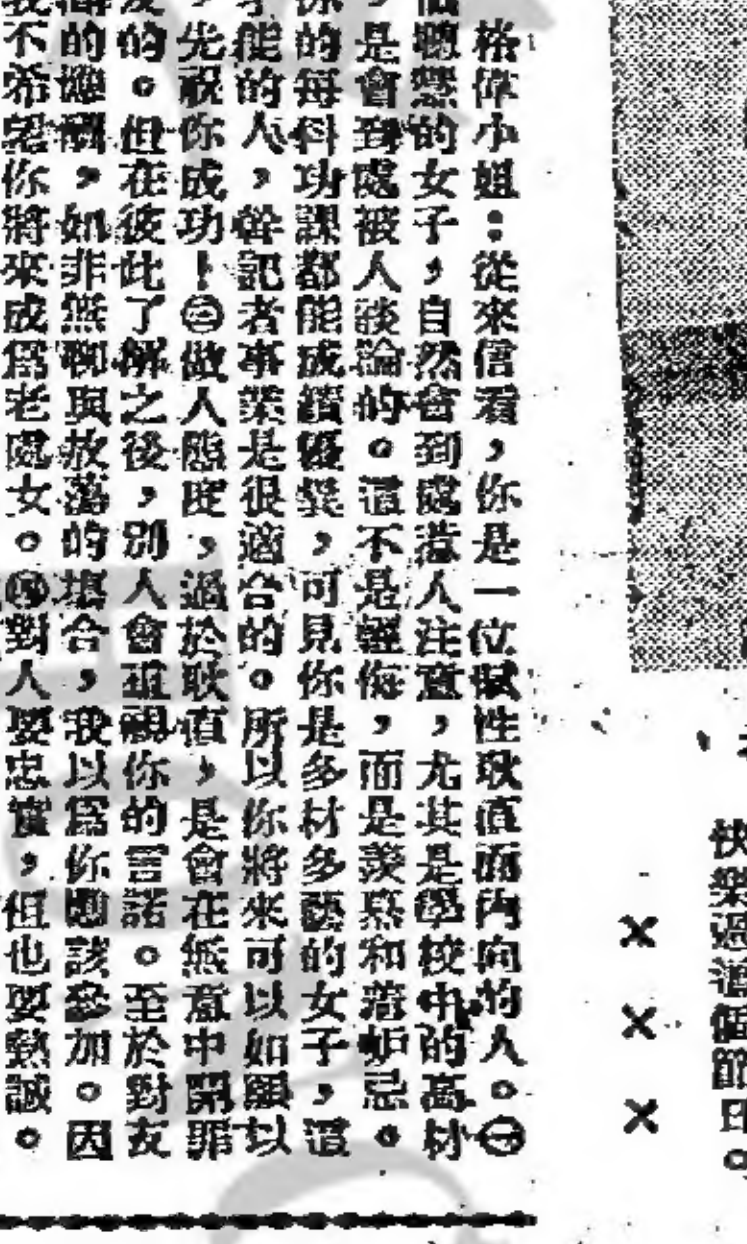 快樂過這個節日。
×××
格偉小姐：從來信看，你是一位賦性耿直而內向的人。㊀
聰慧的女子，自然會到處惹人注意，尤其是學校中的高材
，是會到處被人談論的。這不是輕侮，而是羨慕和著妒忌。
你的每科功課都能成績優異，可見你是多材多藝的女子，這
能的人，幹記者事業是很適合的。所以你將來可以如願以
，先祝你成功！㊁做人態度，過於耿直，是會在無意中開罪
的。但在彼此了解之後，別人會重視你的言諾。至於對友
的應酬，如非無聊與放蕩的場合，我以爲你應該參加。因
我不希望你將來成爲老處女。對人要忠實，但也要熱誠。